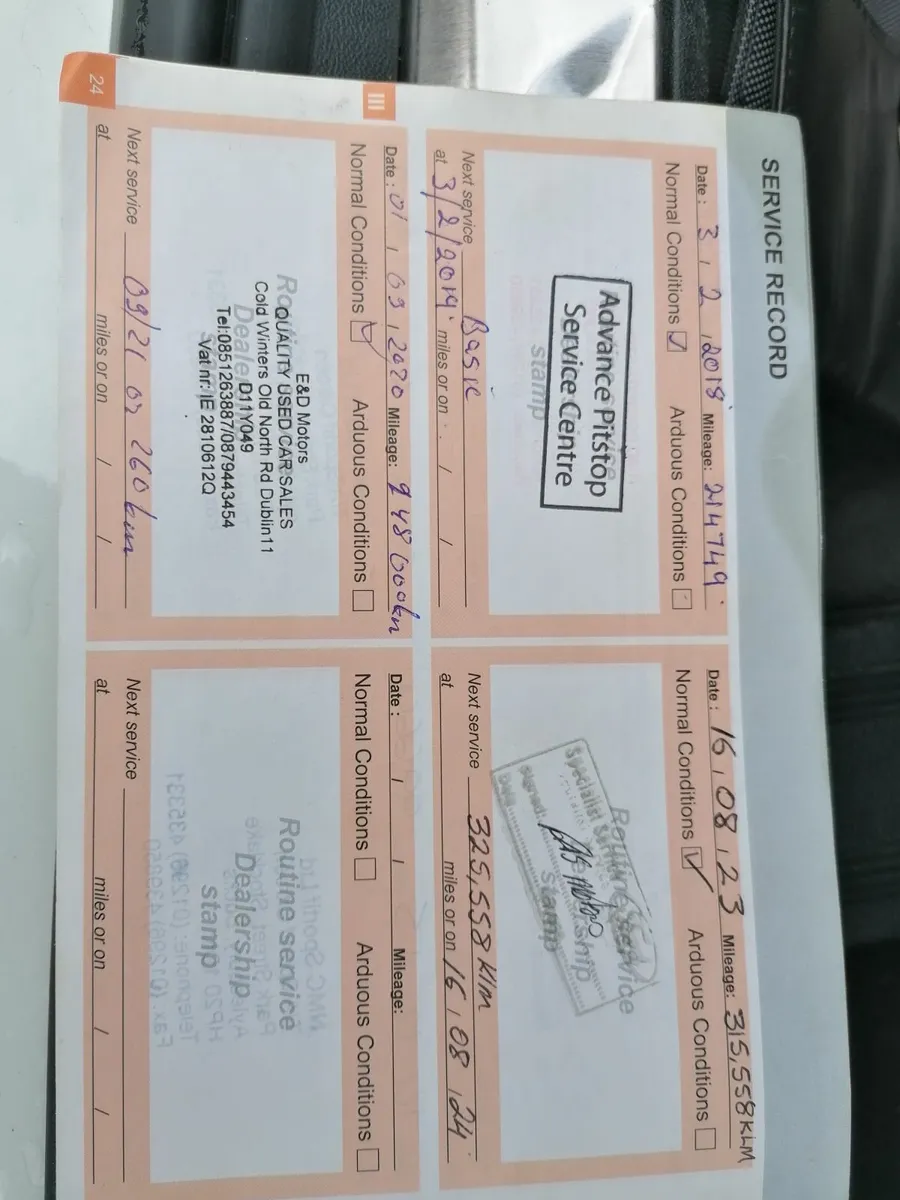 SERVICE RECORD
Date : 3 , 2 , 2018 Mileage: 214749
Normal Conditions ☑ Arduous Conditions ☐
Advance Pitstop
Service Centre
stamp
Next service Basic
at 3/2/2019 miles or on / /
Date : 16 , 08 , 23 Mileage: 315,558KLM
Normal Conditions ☑ Arduous Conditions ☐
Routine service
Specialist
stamp
Next service 325,558 KLM
at miles or on 16 , 08 , 24
III
Date : 01 , 09 , 2020 Mileage: 248 000km
Normal Conditions ☑ Arduous Conditions ☐
E&D Motors
QUALITY USED CAR SALES
Cold Winters Old North Rd Dublin11
D11Y049
Tel:0851263887/0879443454
Vat nr: IE 2810612Q
Next service 09/21 or 260 km
at miles or on / /
Date : / / Mileage:
Normal Conditions ☐ Arduous Conditions ☐
Routine service
Dealership
stamp
Next service
at miles or on / /
24